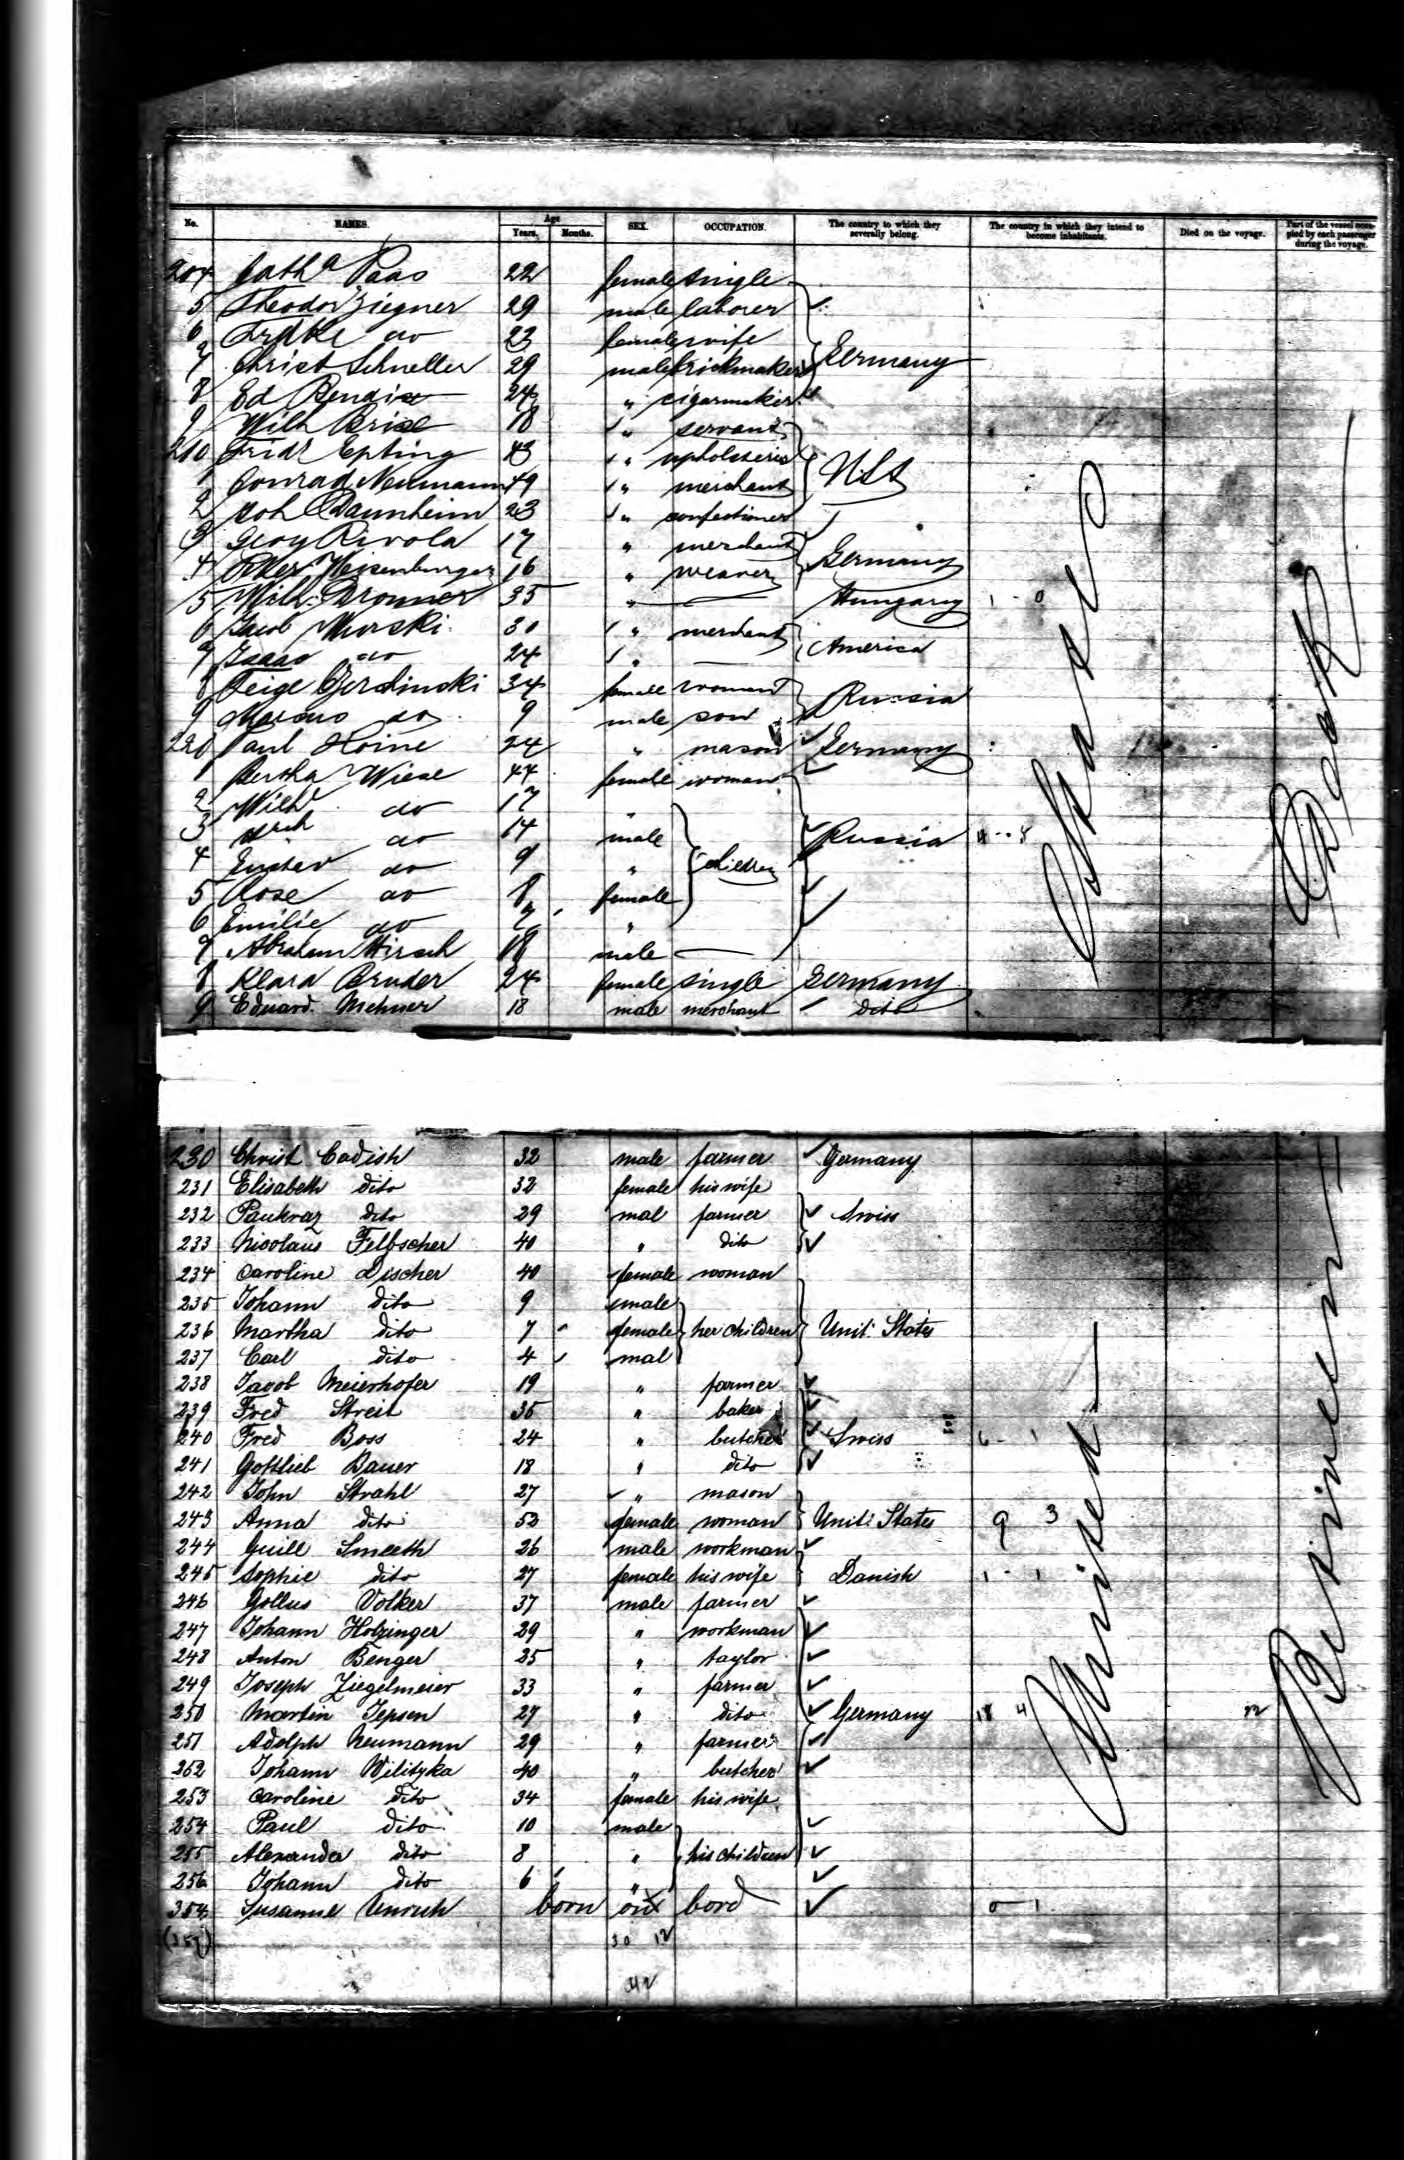 No. NAMES. Age Years. Months. SEX. OCCUPATION. The country to which they severally belong. The country in which they intend to become inhabitants. Died on the voyage. Part of the vessel occupied by each passenger during the voyage.
204 Cath a Paas 22 female single
5 Theodor Ziegner 29 male laborer
6 do 23 female wife
7 Christ Schneller 29 male brickmaker Germany
8 Ed Bendix 24 " cigarmaker
9 Wilh Brise 18 " servant
210 Fridr Epting 43 " upholsterer
1 Conrad Neumann 49 " merchant U.S.
2 Joh Dannheim 23 " confectioner
3 Geor Rivola 17 " merchant
4 Peter Weisenburger 16 " weaver Germany
5 Wilh. Bronner 35 " — Hungary 1 - 0
6 Jacob Murski 30 " merchant
7 Isaac do 24 " — America
8 Feige Gerdinski 34 female woman
9 Marcus do 9 male son Russia
220 Paul Hoine 24 " mason Germany
1 Bertha Wiese 44 female woman
2 Wilh do 17 "
3 do 14 male Russia
4 Gustav do 9 " children
5 Rose do 8 female
6 Emilie do "
7 Abraham Hirsch 18 male —
8 Klara Bruder 24 female single Germany
9 Eduard Mehner 18 male merchant dito
230 Christ Cadish 32 male farmer Germany
231 Elisabeth dito 32 female his wife
232 Pankraz dito 29 mal farmer Swiss
233 Nicolaus Felbscher 40 " dito
234 Caroline Discher 40 female woman
235 Johann dito 9 male
236 Martha dito 7 female her children Unit. States
237 Carl dito 4 mal
238 Jacob Meierhofer 19 " farmer
239 Fred Streit 35 " baker
240 Fred Boss 24 " butcher Swiss 6 - 1
241 Gottlieb Bauer 18 " dito
242 John Strahl 27 " mason
243 Anna dito 53 female woman Unit. States 9 3
244 Guill Smeeth 26 male workman
245 Sophie dito 27 female his wife Danish 1 - 1
246 Gollus Volker 37 male farmer
247 Johann Holzinger 29 " workman
248 Anton Benger 25 " taylor
249 Joseph Ziegelmeier 33 " farmer
250 Martin Jepsen 27 " dito Germany 18 4
251 Adolph Neumann 29 " farmer
252 Johann Wilityka 40 " butcher
253 Caroline dito 34 female his wife
254 Paul dito 10 male
255 Alexander dito 8 " his children
256 Johann dito 6 "
354 Susanne Unruh born on bord 0 - 1
(357) 30 12
42
United